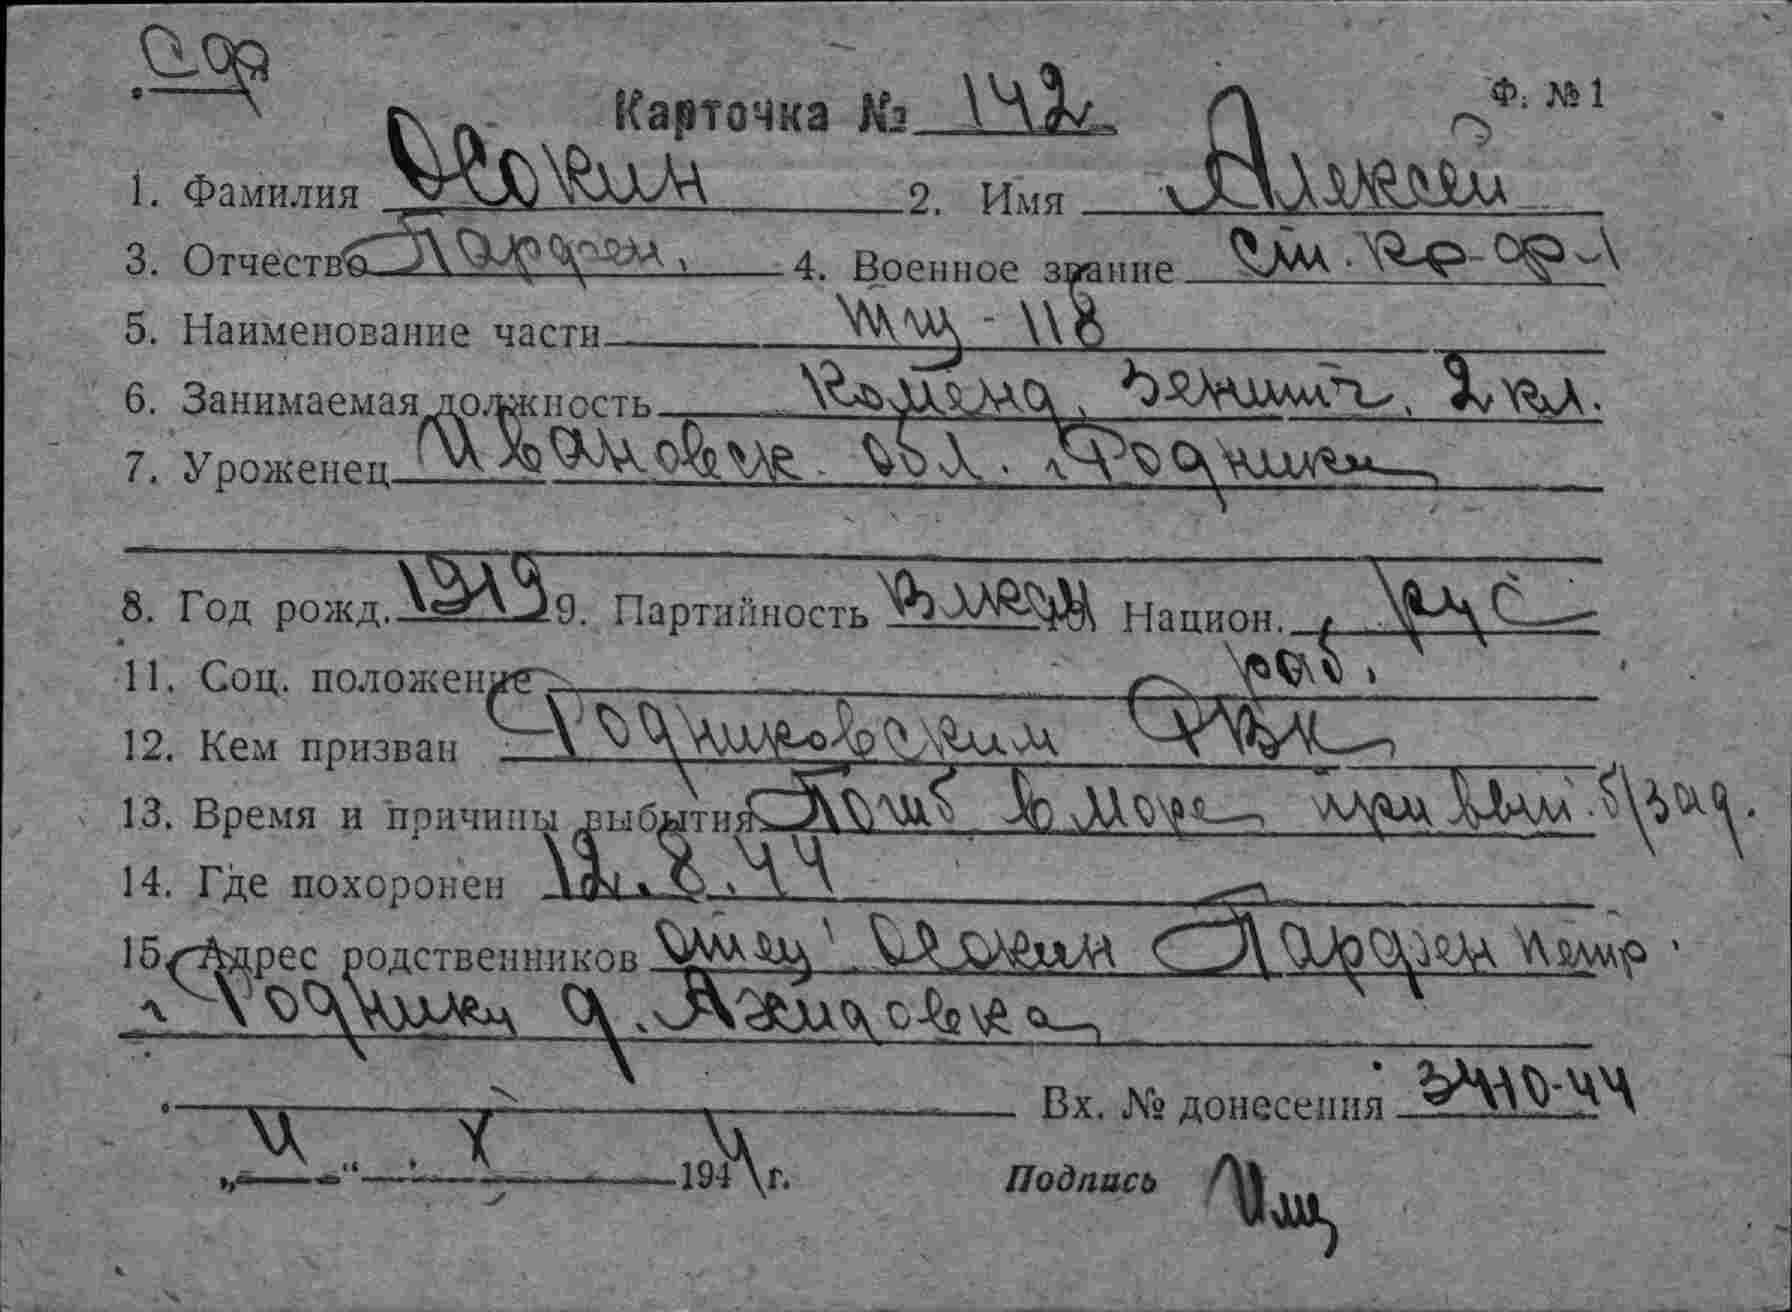 Карточка № 142 Ф. № 1
1. Фамилия Осокин 2. Имя Алексей
3. Отчество Парфен. 4. Военное звание Ст. кр-фл
5. Наименование части тщ-118
6. Занимаемая должность Команд. зенитч. 2 кл.
7. Уроженец Ивановск. обл. г Родники
8. Год рожд. 1919 9. Партийность влксм Национ. рус
11. Соц. положение раб.
12. Кем призван Родниковским РВК
13. Время и причины выбытия Погиб в море при вып. б/зад.
14. Где похоронен 12.8.44
15. Адрес родственников отец Осокин Парфен Петр
г Родники д. Ажидовека
Вх. № донесения 3410-44
„4“ X 1944 г. Подпись